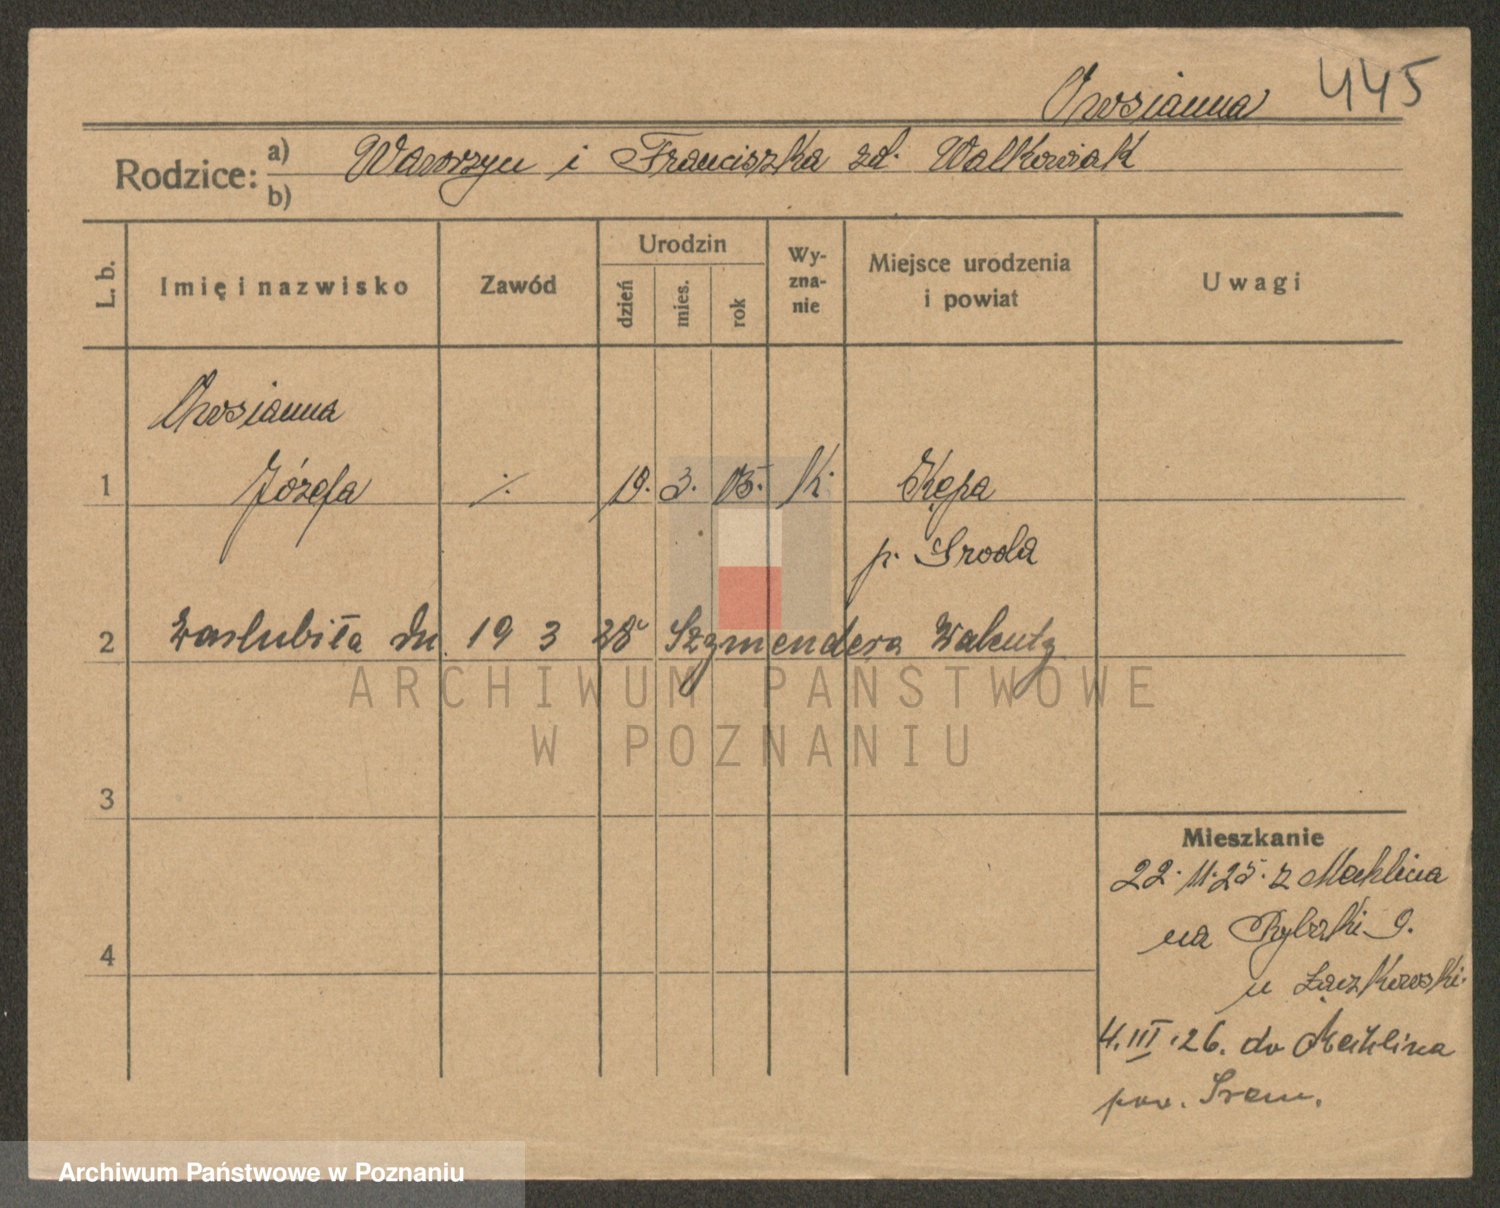 Owsianna 445
Rodzice: a) Wawrzyn i Franciszka zd. Walkowiak
b)
L. b.
Imię i nazwisko
Zawód
Urodzin
dzień
mies.
rok
Wy-
zna-
nie
Miejsce urodzenia
i powiat
Uwagi
Owsianna
1 Józefa ·/. 19. 3. 05. K. Kępa
p. Sroda
2 zaslubiła dn. 19 3 28 Szymendera Walenty
ARCHIWUM PAŃSTWOWE
W POZNANIU
3
Mieszkanie
22. 11. 25. z Mechlina
na Rybaki 9.
4
u Łączkowski.
4. III. 26. do Mechlina
pow. Srem.
Archiwum Państwowe w Poznaniu